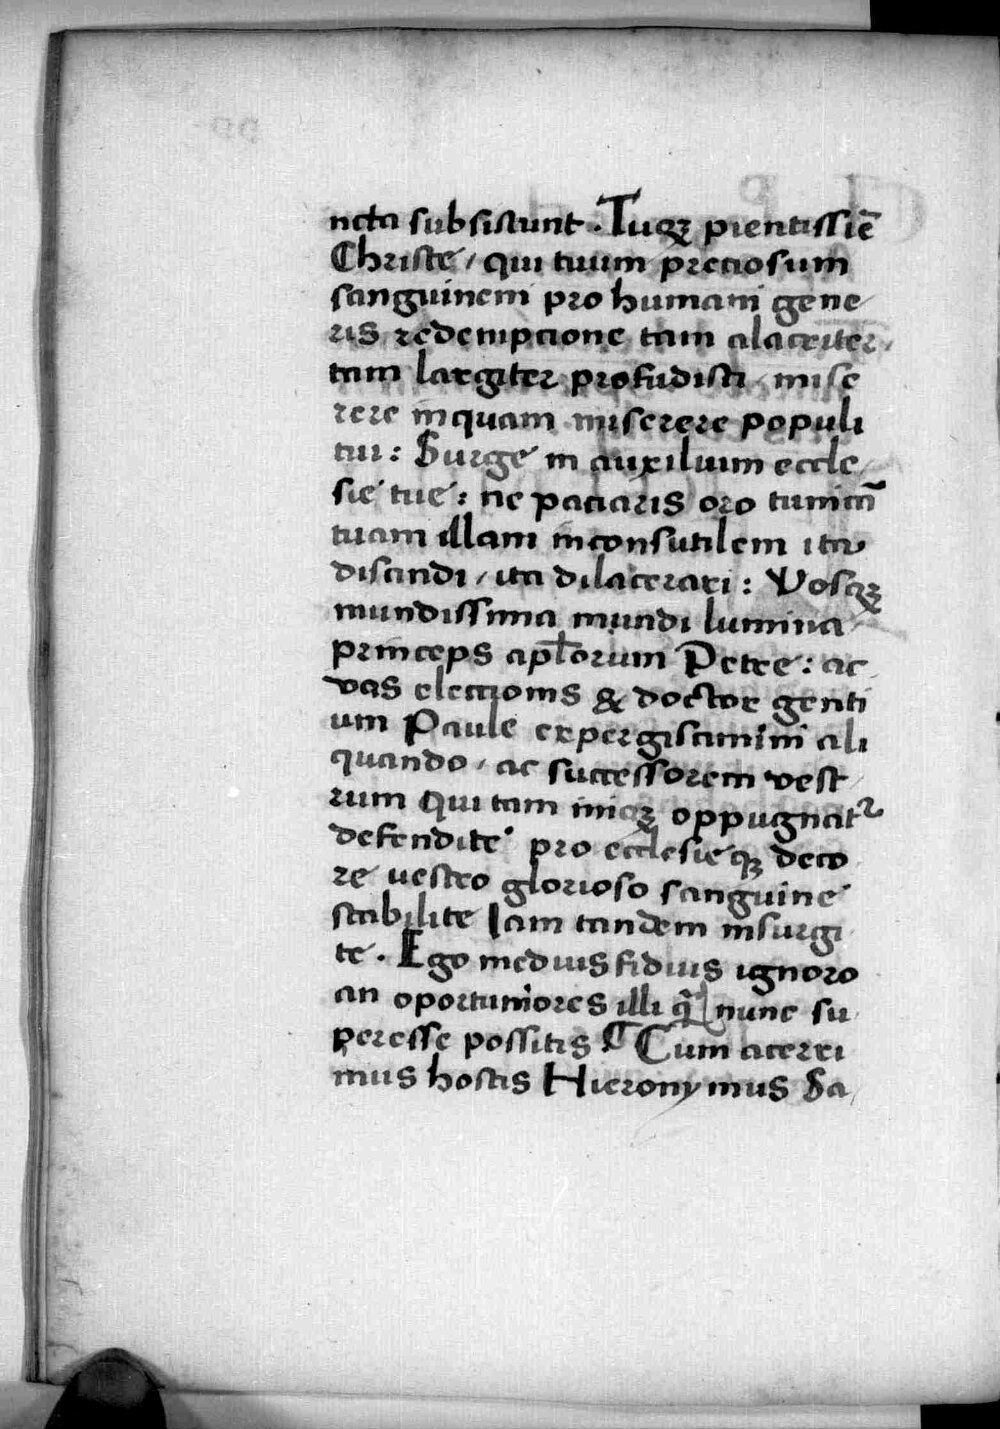 ncta subsistunt . Tuqꝫ pientissiē
Christe / qui tuum preciosum
sanguinem pro humani gene/
ris redempcione tam alacriter/
tam largiter profudisti / mise
rere inquam miserere populi
tui : Surge in auxilium eccle/
sie tue : ne paciaris oro tunicā
tuam illam inconsutilem ita
discindi / ita dilacerari : Vosqꝫ
mundissima mundi lumina/
princeps apl̄orum Petre : ac
vas electionis & doctor genti
um Paule expergiscimini ali
quando / ac successorem vest/
rum qui tam iniqꝫ oppugnat᷑
defendite pro ecclesie qꝫ deco
re vestro glorioso sanguine
stabilite Iam tandem insurgi
te . Ego medius fidius ignoro
an oportuniores illi q̃ nunc su
peresse possitis ¶ Cum acerri
mus hostis Hieronymus Sa/